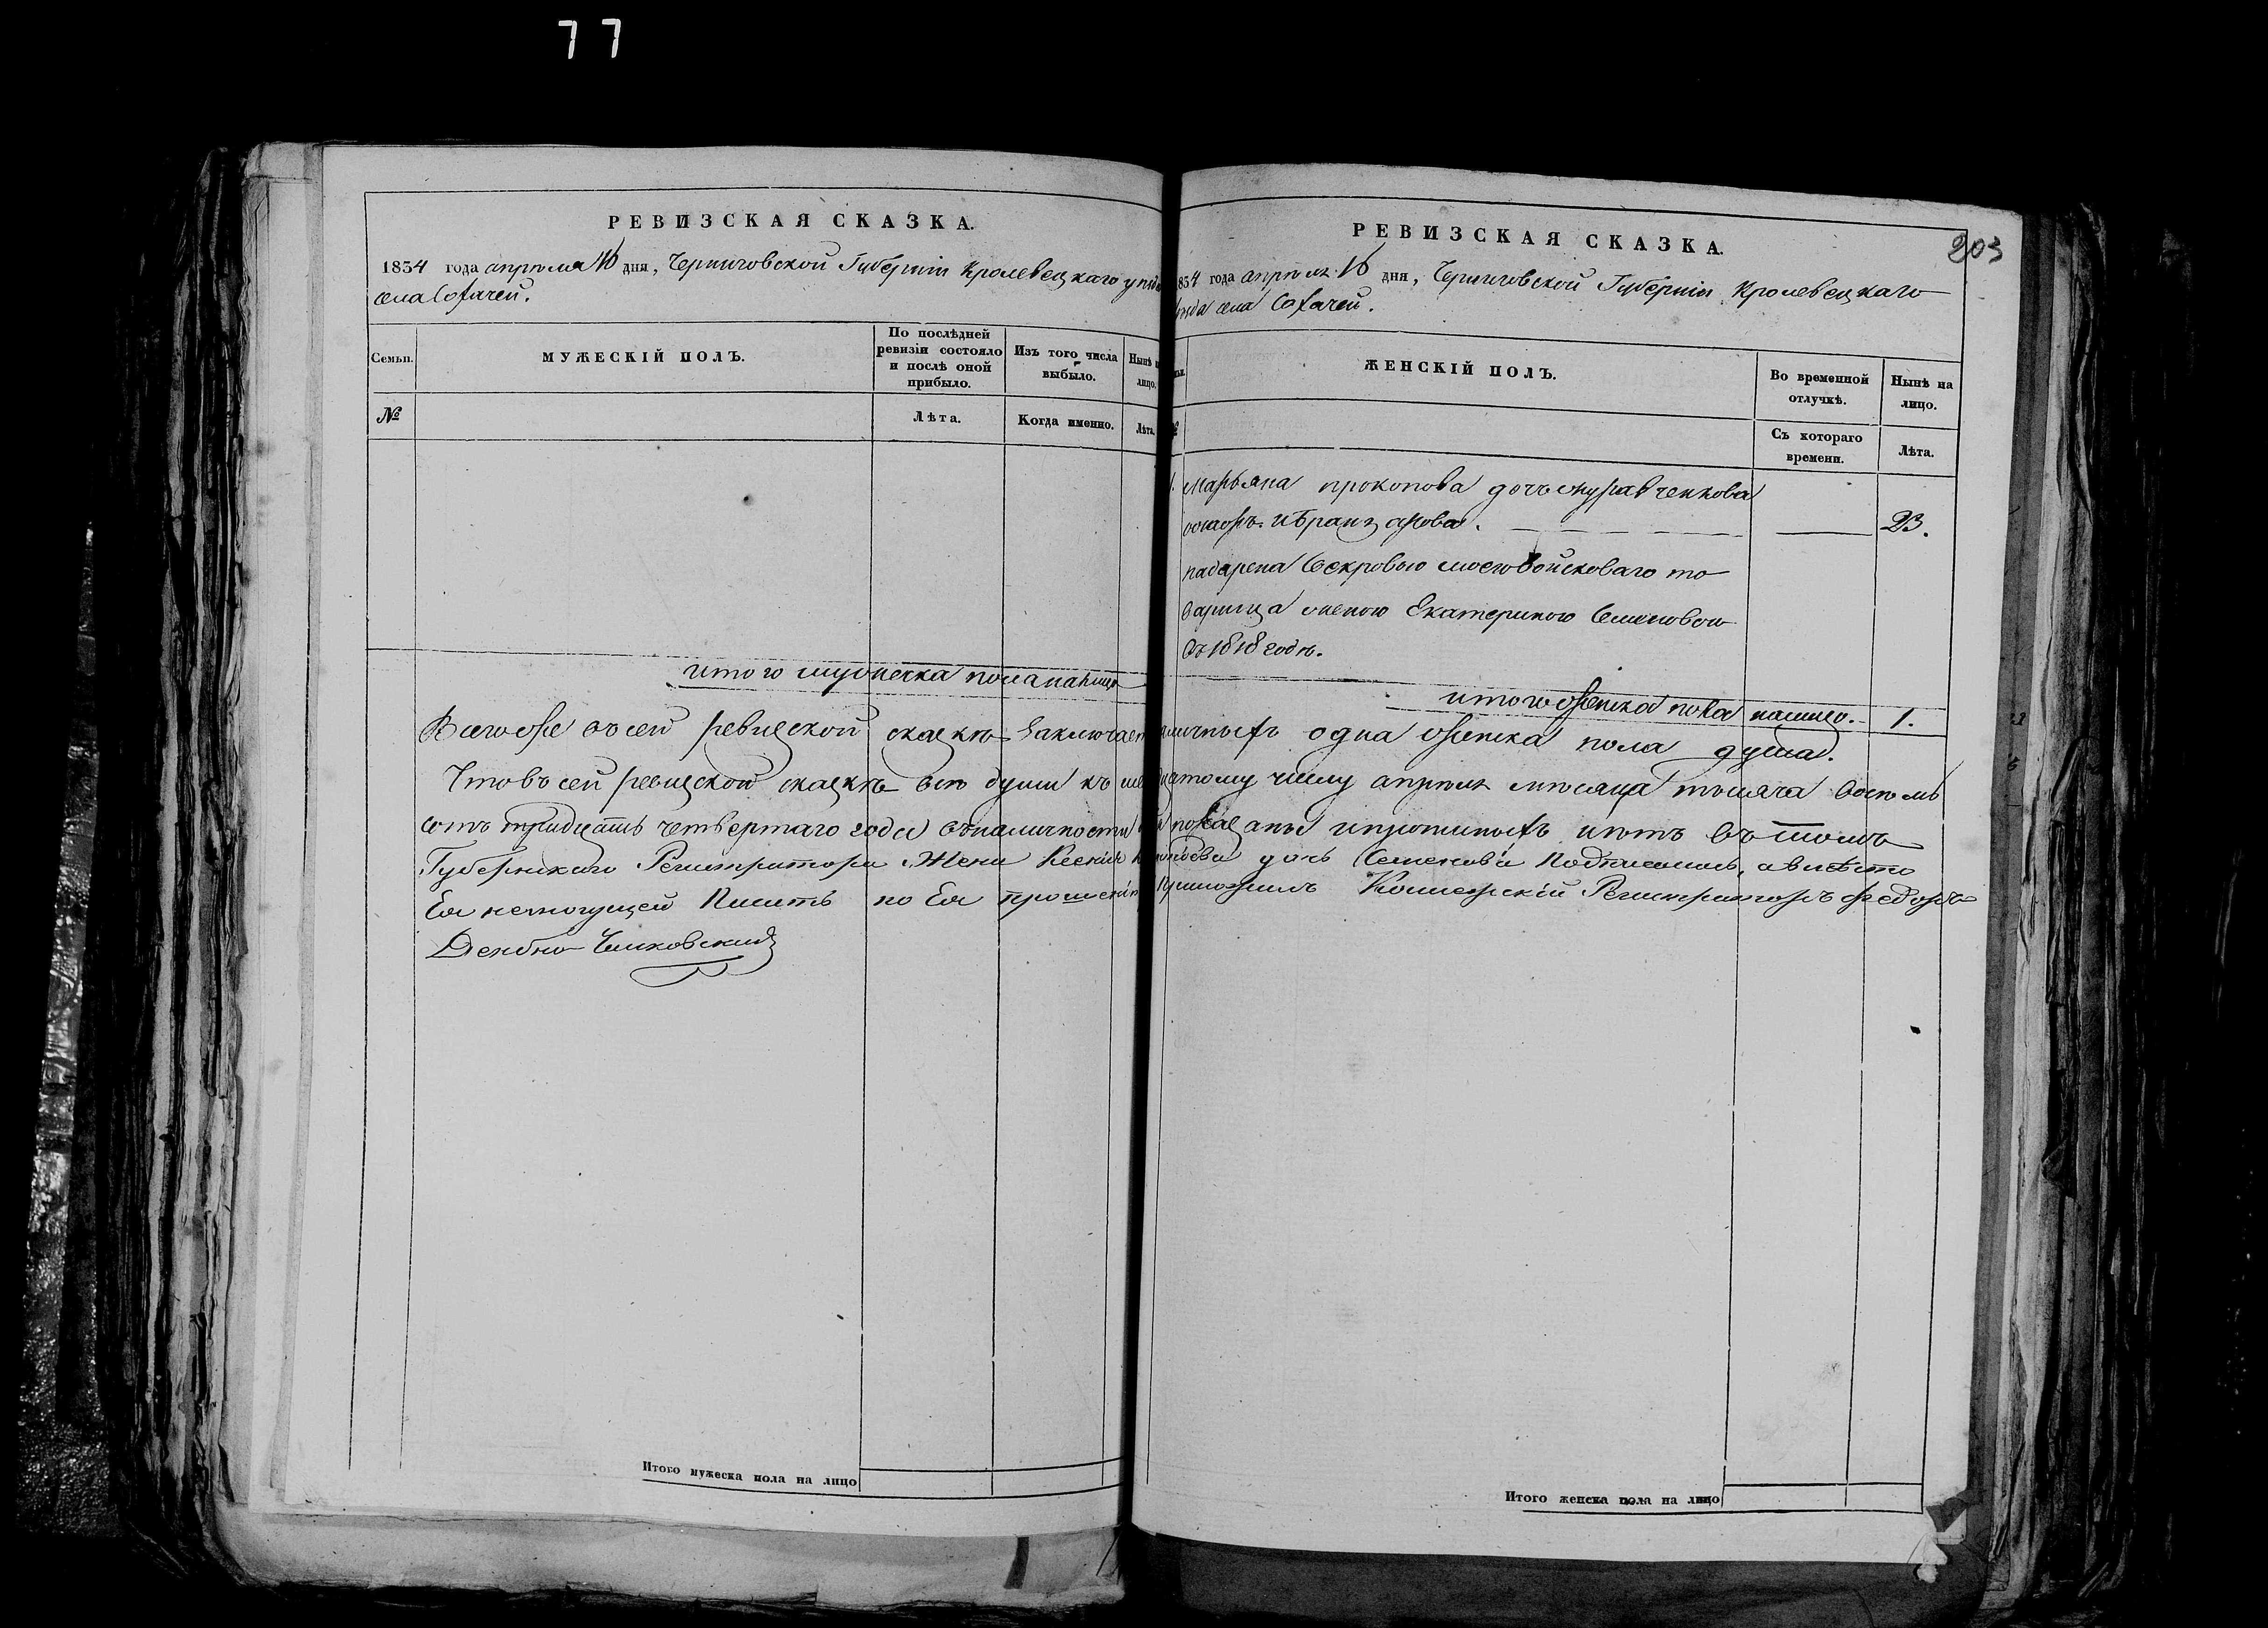 77
РЕВИЗСКАЯ СКАЗКА.
1834 года апреля 16 дня, Черниговской Губерніи Кролевецкаго уезда
села Собачей.
Семьи. МУЖЕСКІЙ ПОЛЪ. По послѣдней ревизіи состояло и послѣ оной прибыло. Изъ того числа выбыло. Нынѣ на лицо.
№ Лѣта. Когда именно. Лѣта.
итого мужеска пола налицо
РЕВИЗСКАЯ СКАЗКА.
203
1834 года апреля 16 дня, Черниговской Губерніи Кролевецкаго
уезда села
ЖЕНСКІЙ ПОЛЪ. Во временной отлучкѣ. Нынѣ на лицо.
№ Съ котораго времени. Лѣта.
1. Марьяна прокопова дочь журавченкова
23.
надарена Свекровью моею войсковаго то
варища женою Екатериною Семеновою
въ 1818 годе.
итого женска пола налицо. 1.
Всегоже въ сей ревизской сказке заключается наличныхъ одна женска пола душа.
Что въ сей ревизской сказке все души къ шестнадцатому числу апреля месяца тысяча восемь
сотъ тридцать четвертаго года въ наличности показаны и прописныхъ нетъ въ томъ
Губернского Регистратора Жена дочь Семенова Подписалась, а вместо
Ея немогущей Писать по Ея прошенію приложилъ Колежскій Регистраторъ Федоръ
Итого мужеска пола на лицо
Итого женска пола на лицо